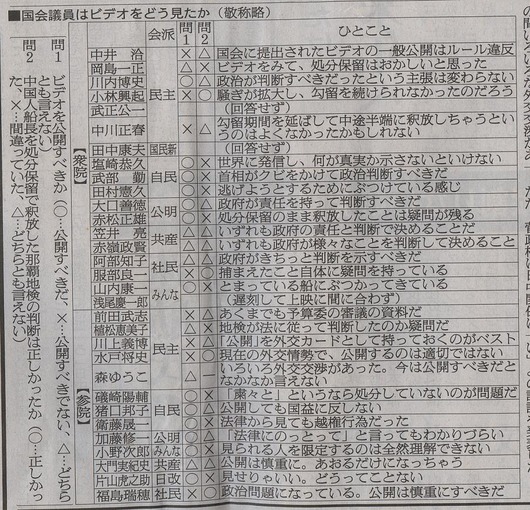 ■国会議員はビデオをどう見たか（敬称略）
会派 問1 問2 ひとこと
【衆院】
中井 洽 × △ 国会に提出されたビデオの一般公開はルール違反
岡島一正 △ × ビデオをみて、処分保留はおかしいと思った
川内博史 民主 ○ △ 政治が判断すべきだったという主張は変わらない
小林興起 × ○ 騒ぎが拡大し、勾留を続けられなかったのだろう
武正公一 （回答せず）
中川正春 × △ 勾留期間を延ばして中途半端に釈放しちゃうと
いうのはよくなかったかもしれない
田中康夫 国民新 （回答せず）
塩崎恭久 ○ × 世界に発信し、何が真実か示さないといけない
武部 勤 自民 ○ × 首相がクビをかけて政治判断すべきだ
田村憲久 ○ × 逃げようとするためにぶつけている感じ
大口善徳 公明 ○ △ 政府が責任を持って判断すべき
赤松正雄 ○ × 処分保留のまま釈放したことは疑問が残る
笠井 亮 共産 △ △ いずれも政府の責任と判断で決めることだ
赤嶺政賢 △ △ いずれも政府が様々なことを判断して決めること
阿部知子 社民 △ △ 政府がきちっと判断を示すべきだ
服部良一 × ○ 捕まえたこと自体に疑問を持っている
山内康一 みんな ○ × とまっている船にぶつかってきている
浅尾慶一郎 （遅刻して上映に間に合わず）
【参院】
前田武志 × △ あくまでも予算委の審議の資料だ
植松恵美子 △ × 地検が法に従って判断したのか疑問だ
川上義博 民主 × △ 「公開」を外交カードとして持っておくのがベスト
水戸将史 × ○ 現在の外交情勢で、公開するのは適切ではない
森ゆうこ △ いろいろ外交交渉があった。今は公開すべきだと
なかなか言えない
礒崎陽輔 ○ × 「粛々と」というなら処分していないのが問題だ
猪口邦子 自民 ○ △ 公開しても国益に反しない
衛藤晟一 ○ × 法律から見ても越権行為だった
加藤修一 公明 ○ △ 「法律にのっとって」と言ってもわかりづらい
小野次郎 みんな ○ × 見られる人を限定するのは全然理解できない
大門実紀史 共産 △ △ 公開は慎重に。あおるだけになっちゃう
片山虎之助 日改 ○ × 見せりゃいい。どうってことない
福島瑞穂 社民 × ○ 政治問題になっている。公開は慎重にすべきだ
問1 ビデオを公開すべきか（○…公開すべきだ、×…公開すべきでない、△…どちら
とも言えない）
問2 中国人船長を処分保留で釈放した那覇地検の判断は正しかったか（○…正しかっ
た、×…間違っていた、△…どちらとも言えない）